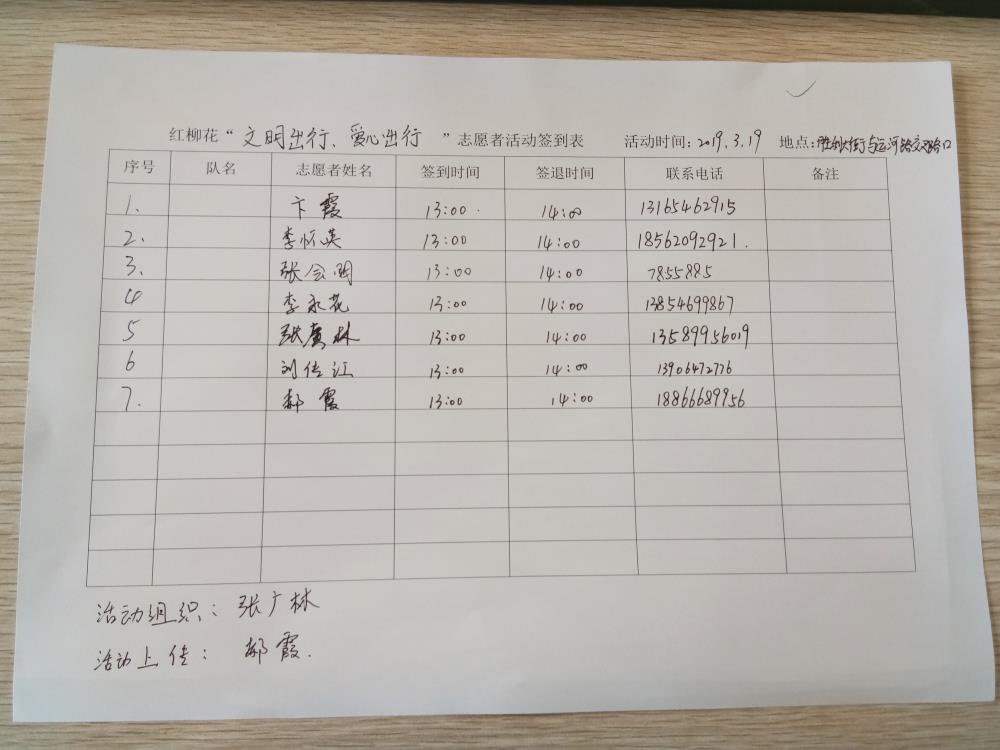 红柳花“文明出行、爱心出行 ”志愿者活动签到表 活动时间:2019.3.19 地点:胜利大街与运河路交叉路口
序号 队名 志愿者姓名 签到时间 签退时间 联系电话 备注
1. 卞霞 13:00 14:00 13165462915
2. 李怀英 13:00 14:00 18562092921.
3. 张会明 13:00 14:00 7855885
4 李永花 13:00 14:00 13854699867
5 张广林 13:00 14:00 13589956019
6 刘传江 13:00 14:00 13906472776
7. 郝霞 13:00 14:00 18866689956
活动组织:张广林
活动上传: 郝霞.